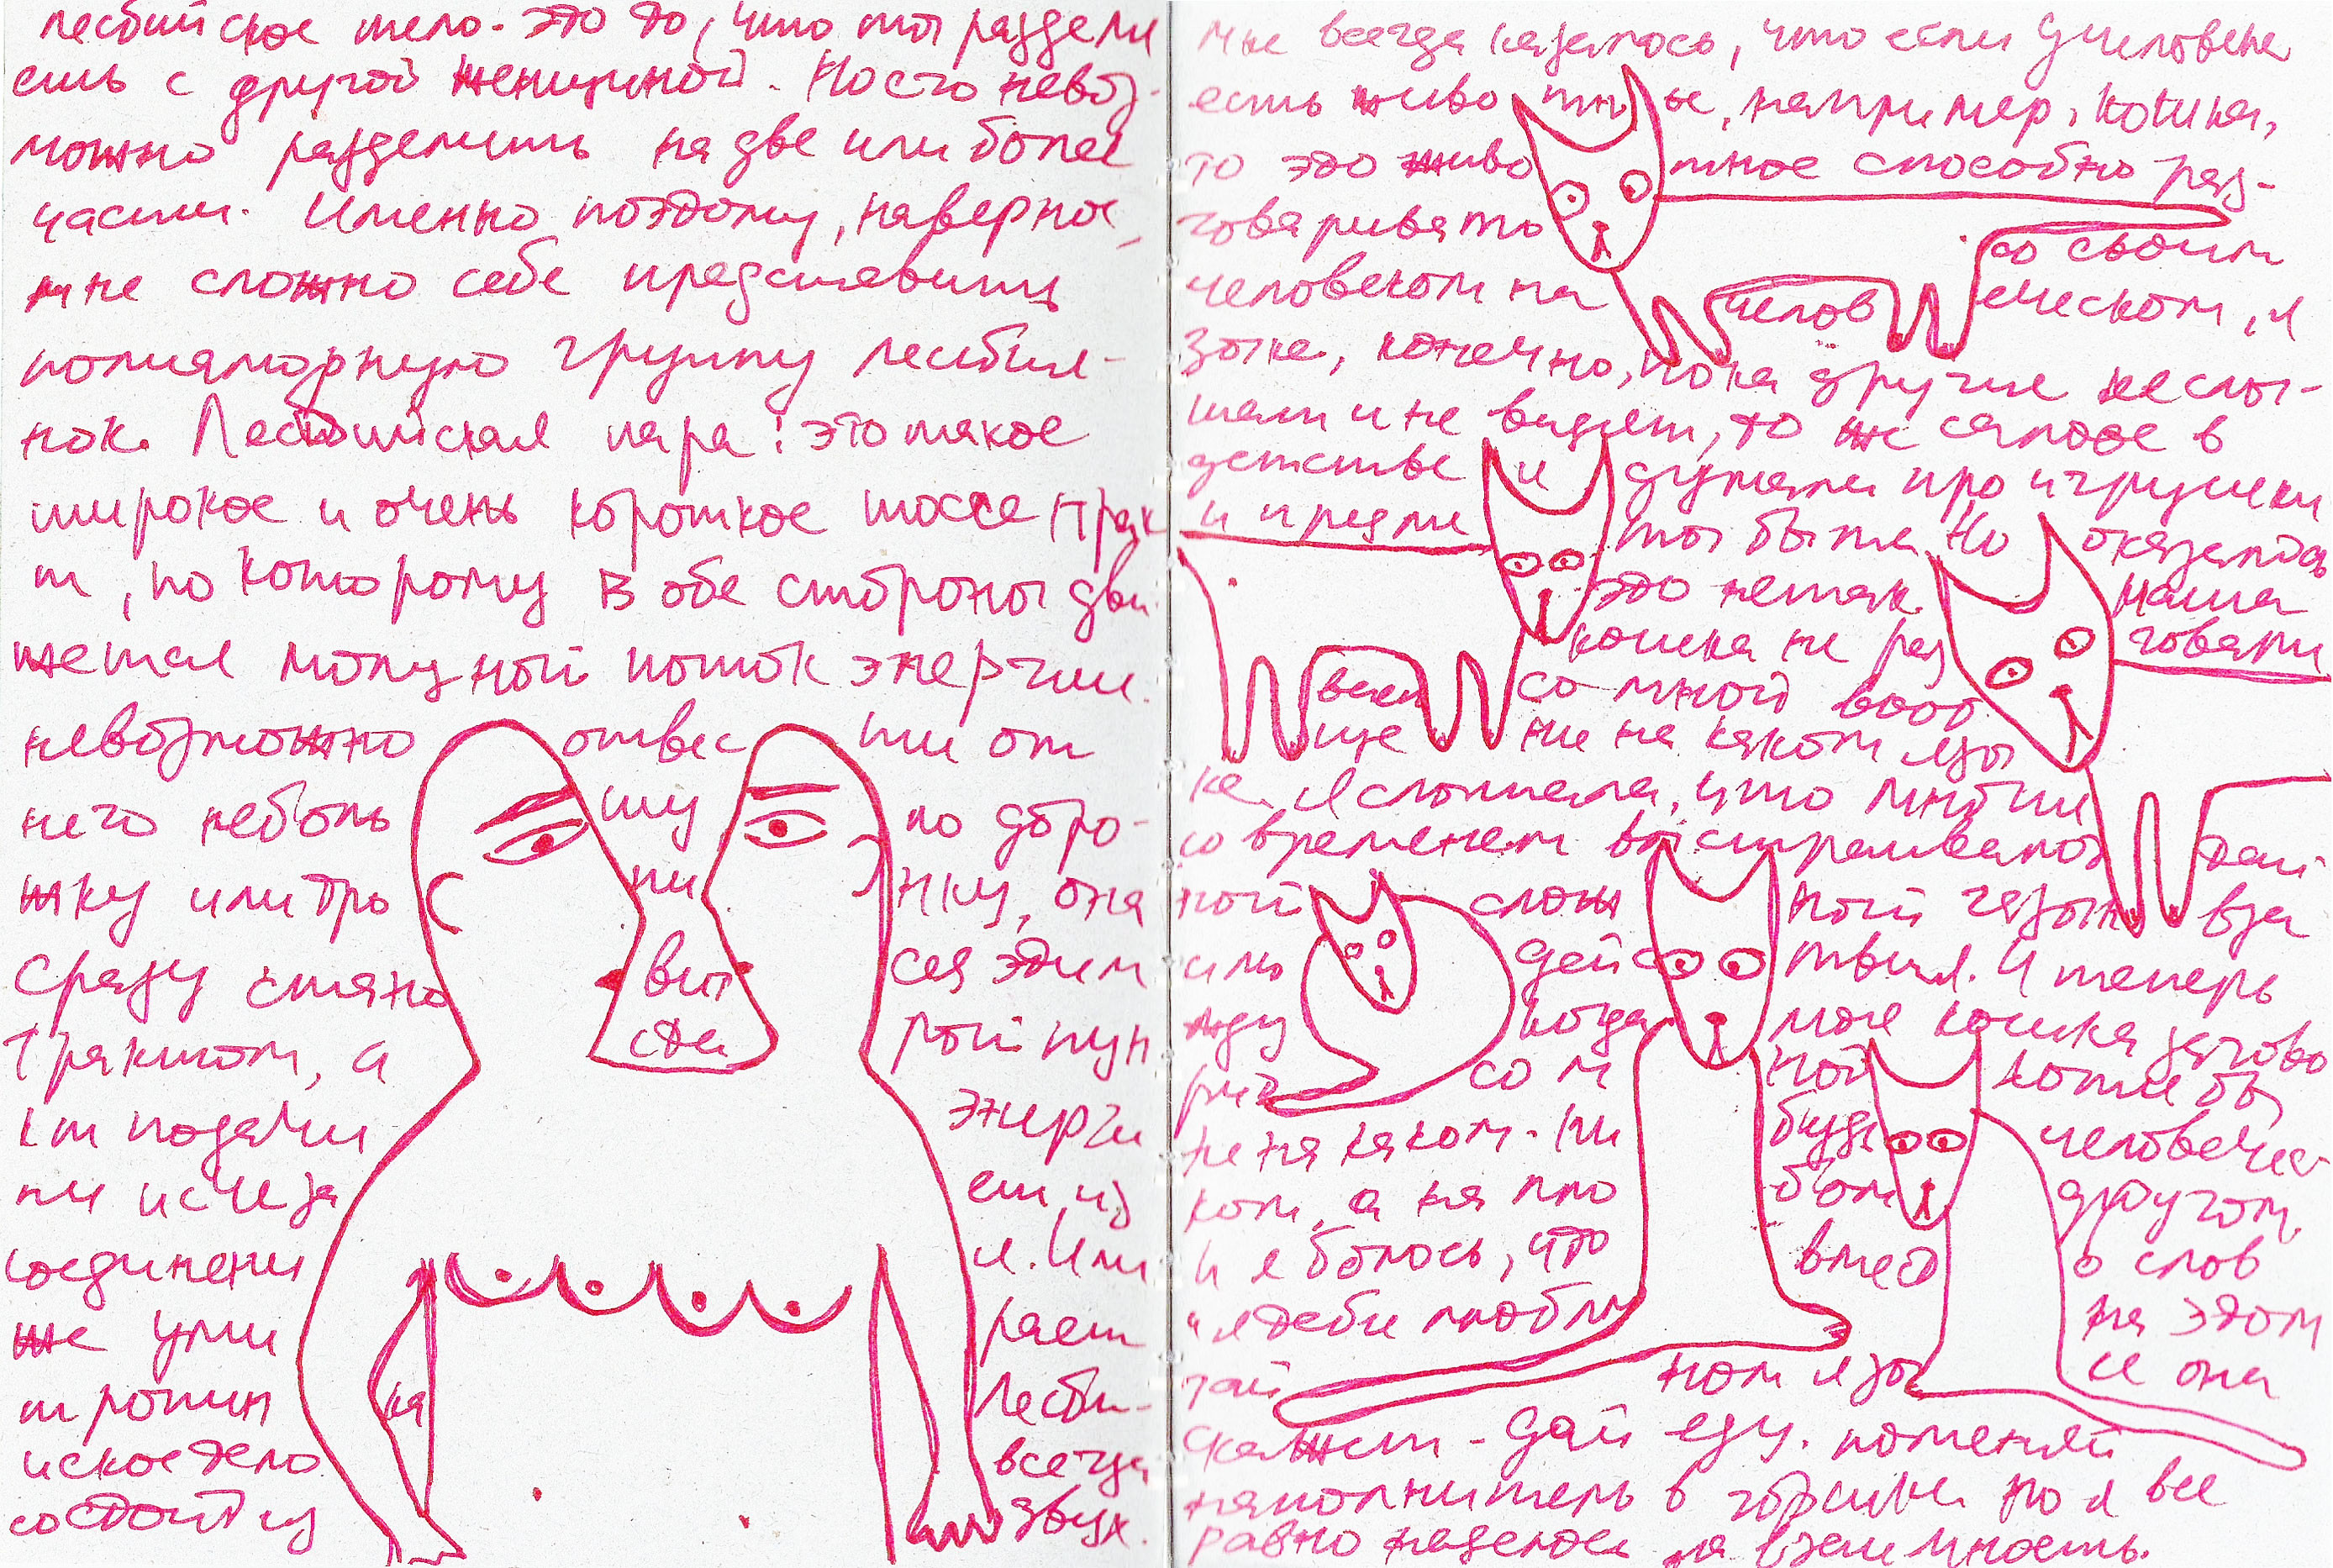 лесбийское тело - это то, что ты раздели
ешь с другой женщиной. Но его невоз-
можно разделить на две или более
части. Именно поэтому, наверное,
мне сложно себе представить
полиаморную группу лесбия-
нок. Лесбийская пара: это такое
широкое и очень короткое шоссе трак
т, по которому в обе стороны дви
жется мощный поток энергии.
невозможно отвес ти от
него неболь шу ю доро-
жку или тро пи нку, она
сразу стано вит ся этим
трактом, а сте рой пун
кт подачи энерги
ти исчеза ет из
соединени я. Или
же уми рает
т ропин ка Лесби-
искоетело всегда
состоит из двух.
мне всегда казалось, что если у человека
есть живо тн ые, например, кошка,
то это живо тное способно раз-
говаривать со своим
человеком на челов еческом, я
зыке, конечно, пока другие не слы-
шали и не видят, то же самое в
детстве и думала про игрушки
и предме ты быта. Но оказалось
это не так. Наша
кошка не раз говари
вает со мной вооб
ще ни на каком язы
ке. Я слышала, что многи
со временем выстраивают дан
ной слож ный язык вза
имо дейс твия. И теперь
жду когда моя кошка загово
рит со м ной хотя бы
не на каком-ни будь человечес
ком, а на лю бом другом.
И я боюсь, что вмест о слов
"я тебя люблю на этом
тай ном язы ке она
скажет - дай еду. поменяй
наполнитель в горшке. Но я все
равно надеюсь на взаимность.